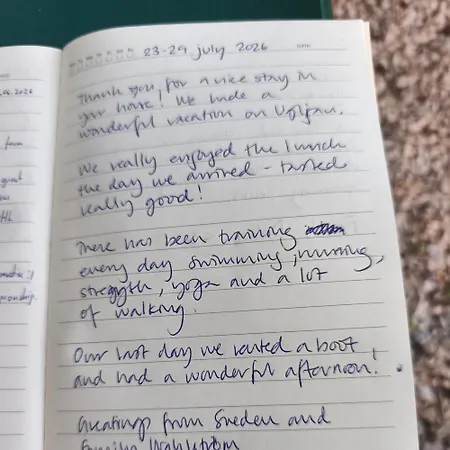 .06.2026
from
great
23-29 july 2026
DATE
Thank you, for a nice stay in
your house! We hade a
wonderful vacation on Ugljan.
We really enjoyed the lunch
the day we arrived - tasted
really good!
There has been training
every day swimming, running,
strength, yoga and a lot
of walking.
Our last day we rented a boat
and had a wonderful afternoon!
Greatings from Sweden and
Familjen